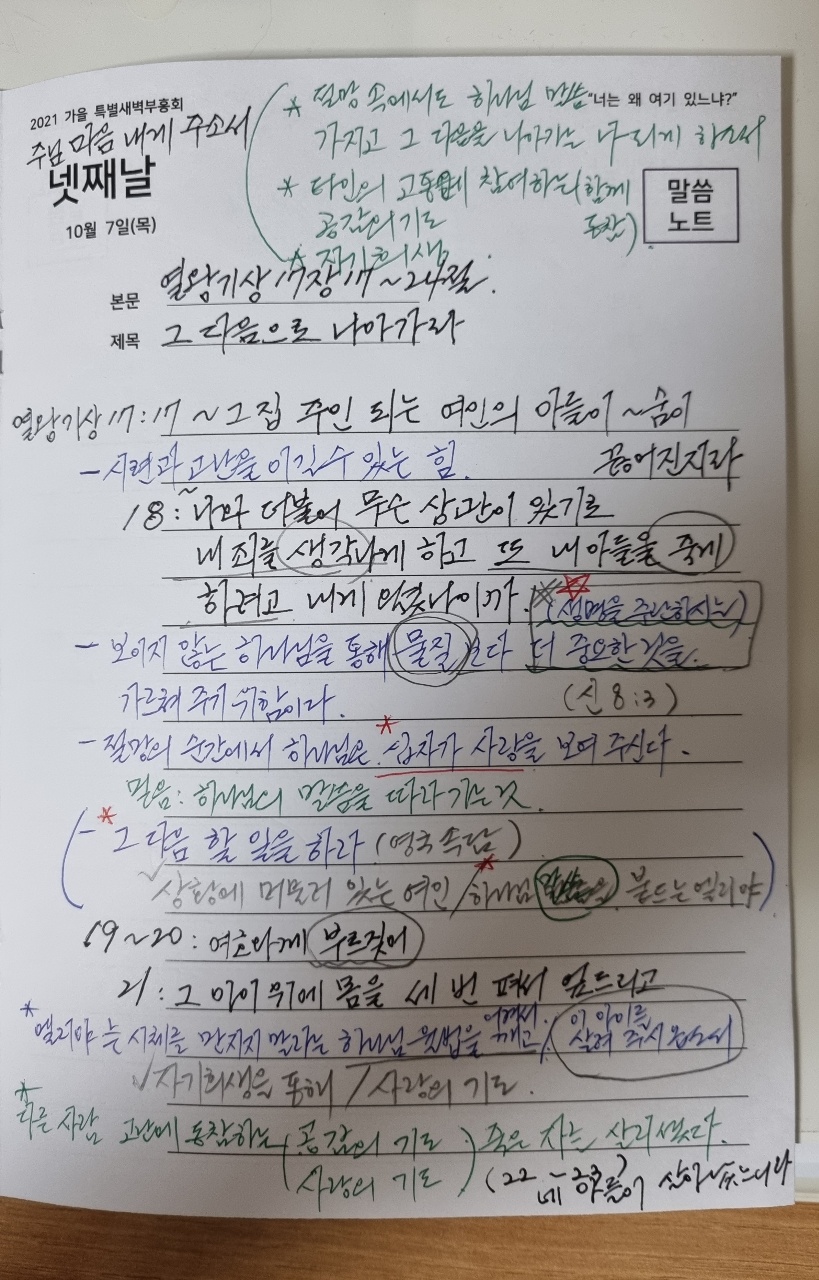 2021 가을 특별새벽부흥회
"너는 왜 여기 있느냐?"
주님 마음 내게 주소서
넷째날
10월 7일(목)
말씀
노트
* 절망 속에서도 하나님 말씀
가지고 그 다음을 나아가는 우리게 하소서
* 타인의 고통에 참여하는(함께
공감의 기도 동참)
* 자기희생
본문 열왕기상 17장 17~24절.
제목 그 다음으로 나아가라
열왕기상 17:17 ~ 그 집 주인 되는 여인의 아들이 ~ 숨이
끊어진지라
- 시련과 고난을 이길 수 있는 힘.
18: ~나와 더불어 무슨 상관이 있기로
내 죄를 생각나게 하고 또 내 아들을 죽게
하려고 내게 오셨나이까.
(생명을 주관하시는)
- 보이지 않는 하나님을 통해 물질보다 더 중요한 것을.
가르쳐 주기 위함이다. (신 8:3)
- 절망의 순간에서 하나님은 * 십자가 사랑을 보여 주신다.
믿음: 하나님의 말씀을 따라 가는 것.
- * 그 다음 할 일을 하라 (영국 속담)
✓ 상황에 머물러 있는 여인 / * 하나님 말씀을 붙드는 엘리야
19~20: 여호와께 부르짖어
21: 그 아이 위에 몸을 세 번 펴서 엎드리고
* 엘리야는 시체를 만지지 말라는 하나님 율법을 깨고, 이 아이를
살려 주시옵소서
✓ 자기희생을 통해 / 사랑의 기도.
* 다른 사람 고난에 동참하는 (공감의 기도
사랑의 기도) 죽은 자는 살리셨다.
(22~23) 네 아들이 살아났느니라